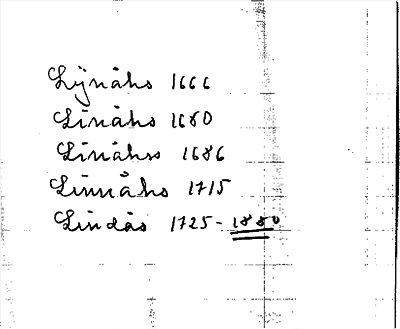 Lijnåhs 1666
Linåhs 1680
Linåhs 1686
Linnåhs 1715
Lindås 1725-1880